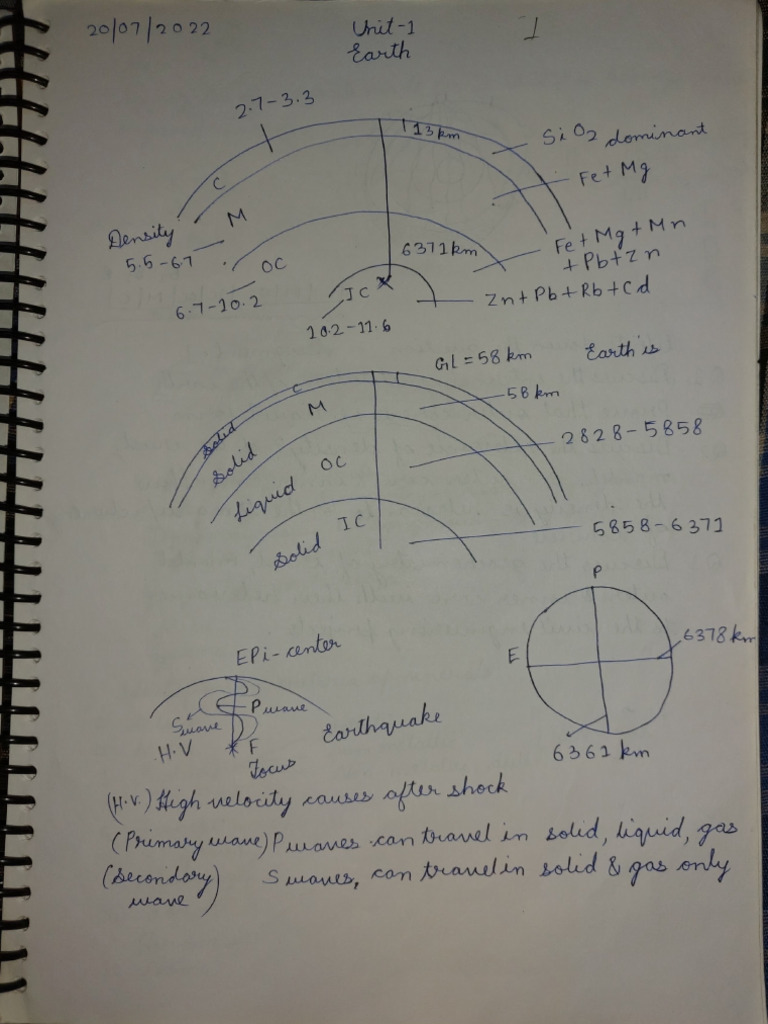 20/07/2022
Unit-1
1
Earth
2.7-3.3
13km
SiO2 dominant
C
Fe+Mg
M
Density
5.5-67
OC
6371km
Fe+Mg+Mn
+Pb+Zn
6.7-10.2
IC
Zn+Pb+Rb+Cd
10.2-11.6
GL=58 km
Earth is
C
58 km
Solid
M
Solid
2828-5858
OC
Liquid
IC
5858-6371
Solid
P
E
6378km
EPi-center
P wave
S wave
Earthquake
H.V
F
Focus
6361 km
(H.V.) High velocity causes after shock
(Primary wave) P waves can travel in solid, liquid, gas
(Secondary wave) S waves, can travel in solid & gas only